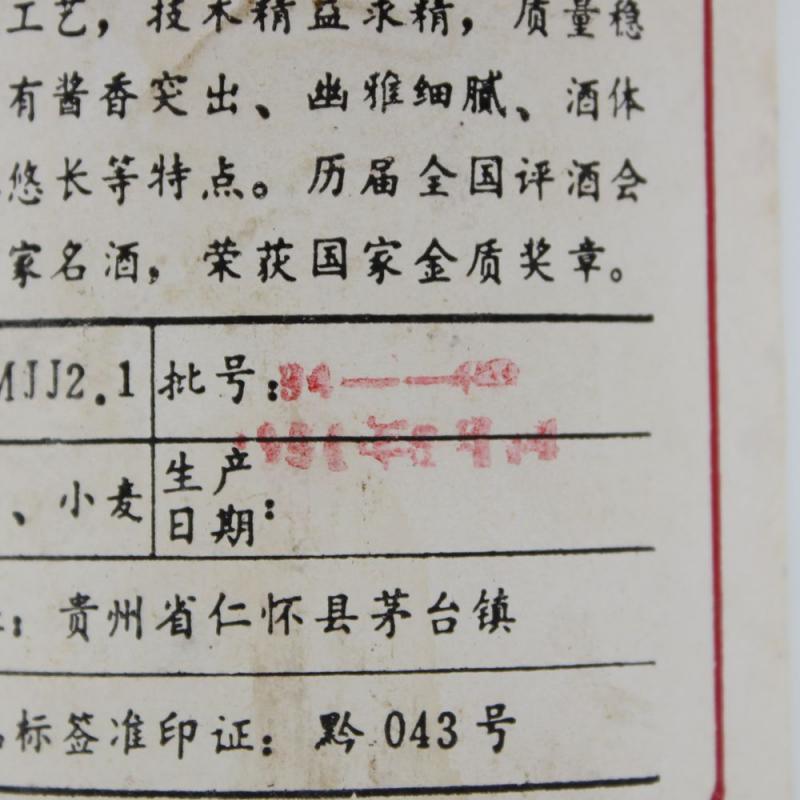 工艺，技术精益求精，质量稳
有酱香突出、幽雅细腻、酒体
悠长等特点。历届全国评酒会
家名酒，荣获国家金质奖章。
MJJ2.1 批号：
、小麦 生产日期：
：贵州省仁怀县茅台镇
标签准印证：黔043号